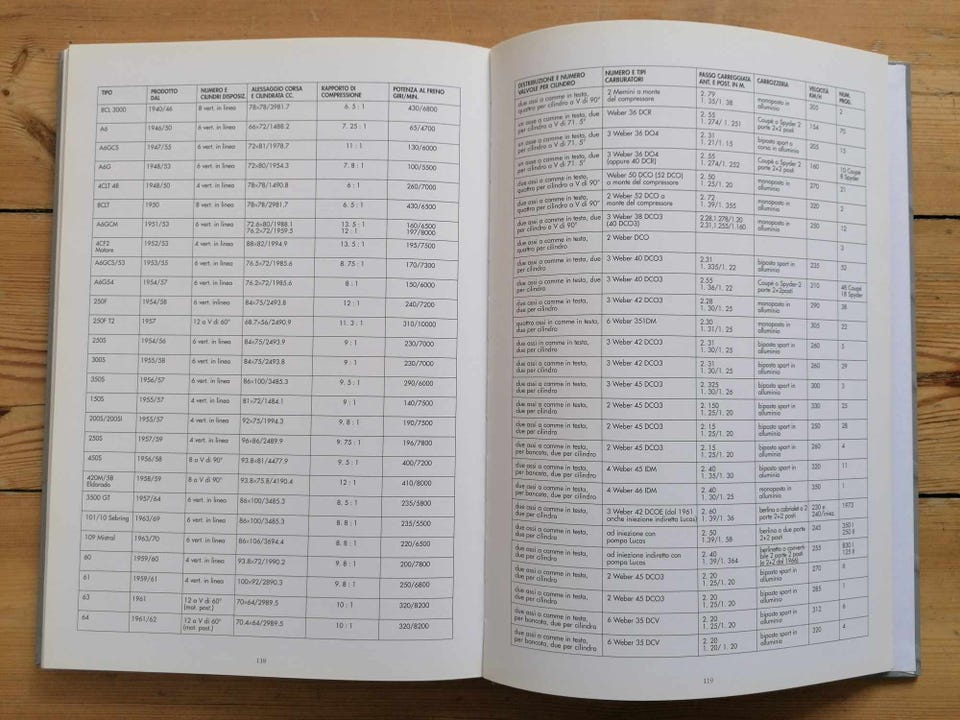 TIPO PRODOTTO DAL NUMERO E CILINDRI DISPOSIZ. ALESSAGGIO CORSA E CILINDRATA CC. RAPPORTO DI COMPRESSIONE POTENZA AL FRENO GIRI/MIN.
8CL 3000 1940/46 8 vert. in linea 78×78/2981.7 6. 5 : 1 430/6800
A6 1946/50 6 vert. in linea 66×72/1488.2 7. 25 : 1 65/4700
A6GCS 1947/55 6 vert. in linea 72×81/1978.7 11 : 1 130/6000
A6G 1948/53 6 vert. in linea 72×80/1954.3 7. 8 : 1 100/5500
4CLT 48 1948/50 4 vert. in linea 78×78/1490.8 6 : 1 260/7000
8CLT 1950 8 vert. in linea 78×78/2981.7 6. 5 : 1 430/6500
A6GCM 1951/53 6 vert. in linea 72.6×80/1988.1 12. 5 : 1 160/6500
76.2×72/1959.5 12 : 1 197/8000
4CF2 Motore 1952/53 4 vert. in linea 88×82/1994.9 13. 5 : 1 195/7500
A6GCS/53 1953/55 6 vert. in linea 76.5×72/1985.6 8. 75 : 1 170/7300
A6G54 1954/57 6 vert. in linea 76.2×72/1985.6 8 : 1 150/6000
250F 1954/58 6 vert. inlinea 84×75/2493.8 12 : 1 240/7200
250F T2 1957 12 a V di 60° 68.7×56/2490.9 11. 3 : 1 310/10000
250S 1954/56 6 vert. in linea 84×75/2493.9 9 : 1 230/7000
300S 1955/58 6 vert. in linea 84×75/2493.8 9 : 1 230/7000
350S 1956/57 6 vert. in linea 86×100/3485.3 9. 5 : 1 290/6000
150S 1955/57 4 vert. in linea 81×72/1484.1 9 : 1 140/7500
200S/200SI 1955/57 4 vert. in linea 92×75/1994.3 9. 8 : 1 190/7500
250S 1957/59 4 vert. in linea 96×86/2489.9 9. 75 : 1 196/7800
450S 1956/58 8 a V di 90° 93.8×81/4477.9 9. 5 : 1 400/7200
420M/58 Eldorado 1958/59 8 a V di 90° 93.8×75.8/4190.4 12 : 1 410/8000
3500 GT 1957/64 6 vert. in linea 86×100/3485.3 8. 5 : 1 235/5800
101/10 Sebring 1963/69 6 vert. in linea 86×100/3485.3 8. 8 : 1 235/5500
109 Mistral 1963/70 6 vert. in linea 86×106/3694.4 8. 8 : 1 220/6500
60 1959/60 4 vert. in linea 93.8×72/1990.2 9. 8 : 1 200/7800
61 1959/61 4 vert. in linea 100×92/2890.3 9. 8 : 1 250/6800
63 1961 12 a V di 60° (mot. post.) 70×64/2989.5 10 : 1 320/8200
64 1961/62 12 a V di 60° (mot. post.) 70.4×64/2989.5 10 : 1 320/8200
118
DISTRIBUZIONE E NUMERO VALVOLE PER CILINDRO NUMERO E TIPI CARBURATORI PASSO CARREGGIATA ANT. E POST. IN M. CARROZZERIA VELOCITÀ KM/H NUM. PROD.
due assi a camme in testa, quattro per cilindro a V di 90° 2 Memini a monte del compressore 2. 79 1. 35/1. 38 monoposto in alluminio 305 2
un asse a camme in testa, due per cilindro a V di 71. 5° Weber 36 DCR 2. 55 1. 274/ 1. 251 Coupé o Spyder 2 porte 2+2 posti 154 75
un asse a camme in testa, due per cilindro a V di 71. 5° 3 Weber 36 DO4 2. 31 1. 21/1. 15 biposto sport o corsa in alluminio 205 15
un asse a camme in testa, due per cilindro a V di 71. 5° 3 Weber 36 DO4 (oppure 40 DCR) 2. 55 1. 274/1. 252 Coupé o Spyder 2 porte 2+2 posti 160 10 Coupé 8 Spyder
due assi a camme in testa, quattro per cilindro a V di 90° Weber 50 DCO (52 DCO) a monte del compressore 2. 50 1. 25/1. 20 monoposto in alluminio 270 21
due assi a camme in testa, quattro per cilindro a V di 90° 2 Weber 52 DCO a monte del compressore 2. 72 1. 39/1. 355 monoposto in alluminio 320 2
due assi a camme in testa, due per cilindro a V di 90° 3 Weber 38 DCO3 (40 DCO3) 2.28.1.278/1.20 2.31,1.255/1.160 monoposto in alluminio 250 12
due assi a camme in testa, quattro per cilindro 2 Weber DCO 3
due assi a camme in testa, due per cilindro 3 Weber 40 DCO3 2.31 1. 335/1. 22 biposto sport in alluminio 235 52
due assi a camme in testa, due per cilindro 3 Weber 40 DCO3 2.55 1. 36/1. 22 Coupé o Spyder-2 porte 2+2posti 210 48 Coupé 18 Spyder
due assi a camme in testa, due per cilindro 3 Weber 42 DCO3 2.28 1. 30/1. 25 monoposto in alluminio 290 38
quattro assi in camme in testa, due per cilindro 6 Weber 351DM 2.30 1. 31/1. 25 monoposto in alluminio 305 22
due assi in camme in testa, due per cilindro 3 Weber 42 DCO3 2. 31 1. 30/1. 25 biposto sport in alluminio 260 5
due assi a camme in testa, due per cilindro 3 Weber 42 DCO3 2. 31 1. 30/1. 25 biposto sport in alluminio 260 29
due assi a camme in testa, due per cilindro 3 Weber 45 DCO3 2. 325 1. 30/1. 26 biposto sport in alluminio 300 3
due assi a camme in testa, due per cilindro 2 Weber 45 DCO3 2. 150 1. 25/1. 20 biposto sport in alluminio 330 25
due assi a camme in testa, due per cilindro 2 Weber 45 DCO3 2. 15 1. 25/1. 20 biposto sport in alluminio 250 28
due assi a camme in testa, per bancata, due per cilindro 2 Weber 45 DCO3 2. 15 1. 25/1. 20 biposto sport in alluminio 260 4
due assi a camme in testa, per bancata, due per cilindro 4 Weber 45 IDM 2. 40 1. 35/1. 30 biposto sport in alluminio 320 11
due assi a camme in testa, per bancata, due per cilindro 4 Weber 46 IDM 2. 40 1. 30/1. 25 monoposto in alluminio 350 1
due assi a camme in testa, due per cilindro 3 Weber 42 DCOE (dal 1961 anche iniezione indiretta Lucas) 2. 60 1. 39/1. 36 berlina o cabriolet a 2 porte 2+2 posti 230 e 240/iniez. 1973
due assi a camme in testa, due per cilindro ad iniezione con pompa Lucas 2. 50 1.39/1. 58 berlina a due porte 2+2 posti 245 350 I 250 II
due assi a camme in testa, due per cilindro ad iniezione indiretta con pompa Lucas 2. 40 1. 39/1. 364 berlinetta o convertibile 2 porte 2 posti (o 2+2 dal 1966) 255 830 I 125 II
due assi a camme in testa, due per cilindro 2 Weber 45 DCO3 2. 20 1. 25/1. 20 biposto sport in alluminio 270 6
due assi a camme in testa, due per cilindro 2 Weber 45 DCO3 2. 20 1. 25/1. 20 biposto sport in alluminio 285 1
due assi a camme in testa, per bancata, due per cilindro 6 Weber 35 DCV 2. 20 1. 25/1. 20 biposto sport in alluminio 312 6
due assi a camme in testa, per bancata, due per cilindro 6 Weber 35 DCV 2. 20 1. 20/1. 20 biposto sport in alluminio 320 4
119